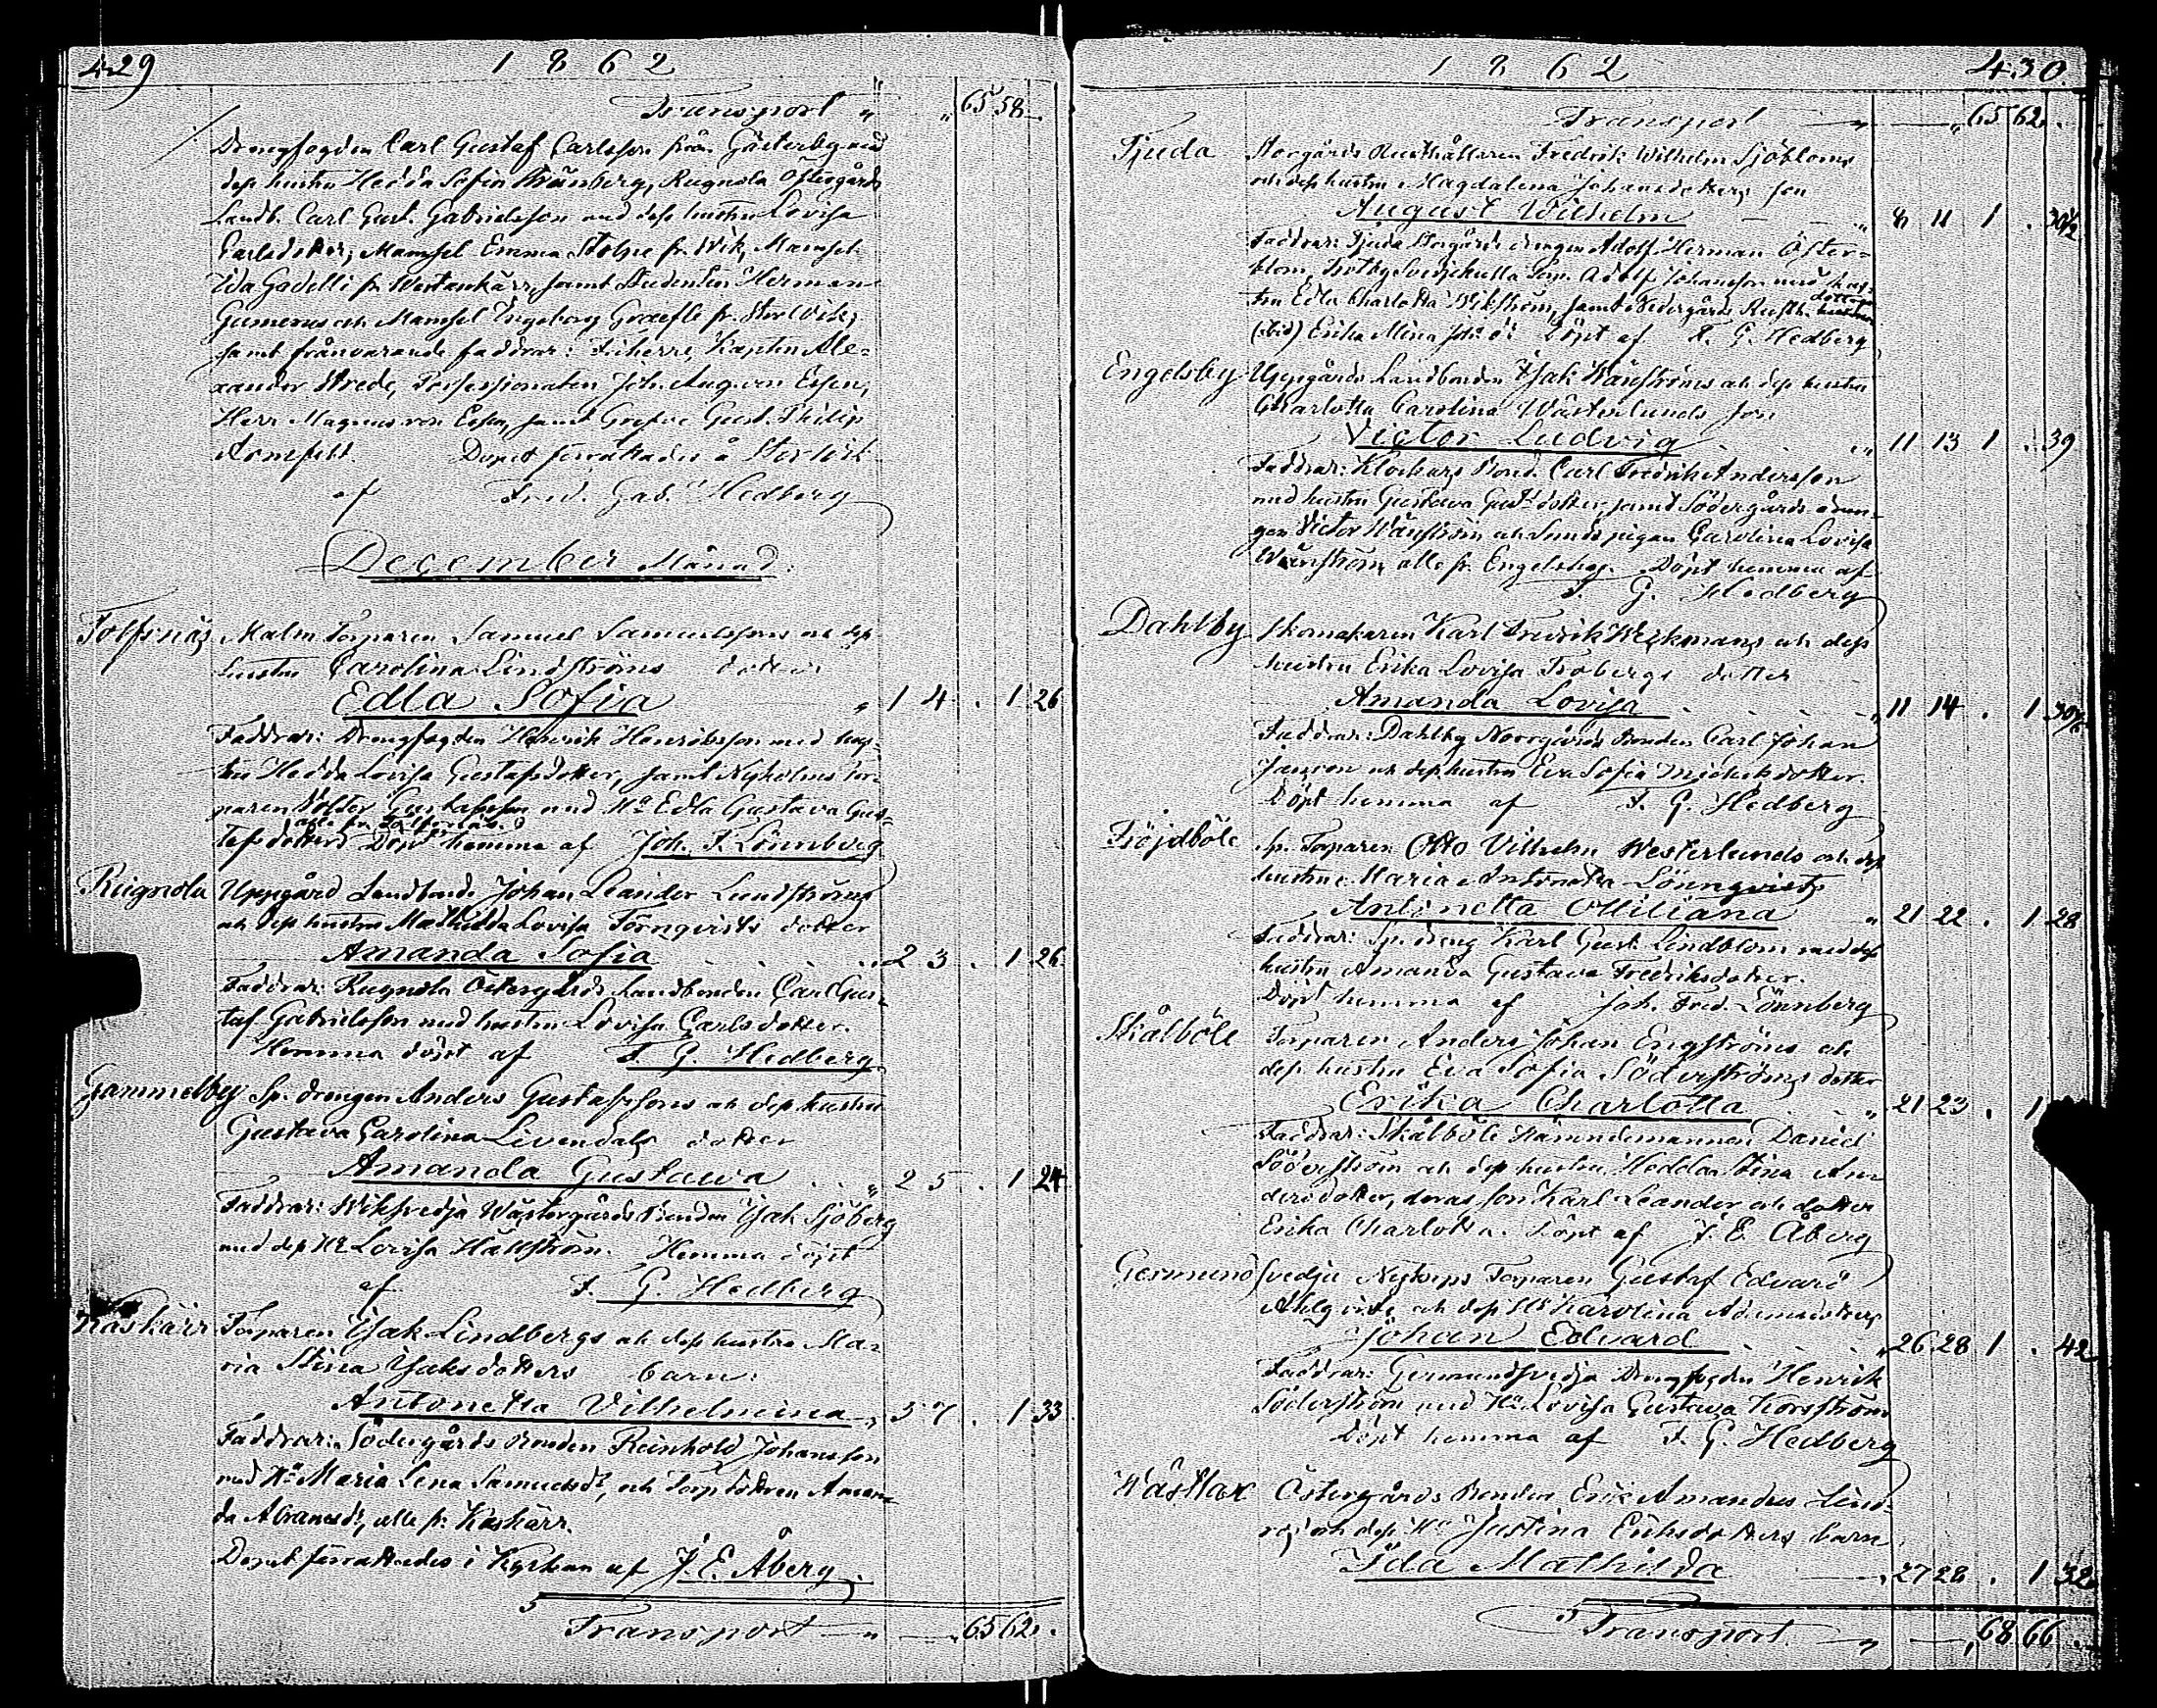 429
1 8 6 2
Transport " " 65 58
Drengfogden Carl Gustaf Carlsson från Gästerby med
dess hustru Hedda Sofia Rugnola Östergårds
Landb. Carl Gust. Gabrielsson med dess hustru Lovisa
Carlsdotter, Mamsel Emma Stolpe fr. Wik, Mamsel
Ida Gadelli fr. Westankärr, samt Studenten Herman
Gumerus och Mamsel Ingeborg Graefle fr. Storwik,
samt frånvarande faddrar: Friherre, Kapten Ale=
xander Wrede, Possessionaten Joh. Aug. von Essen,
Herr Magnus von Essen, samt Grefve Gust. Philip
Armfelt. Dopet förrättades å Storwik
af Fred. Gab. Hedberg
December Månad:
Tolfsnäs Malm Torparen Samuel Samuelssons och dess
hustru Carolina Lindströms dotter
Edla Sofia " 1 4 . 1 26
Faddrar: Drengfogden Henrik Henriksson med hus=
tru Hedda Lovisa Gustafsdotter, samt Nyholms tor=
paren Gustafsson med Ha Edla Gustava Gus=
alle fr. Tolfsnäs.
tafsdotter Döpt hemma af Joh. F. Lönnberg
Rugnola Uppgård Landbond. Johan Leander Lundströms
och dess hustru Mathilda Lovisa Törnqvists dotter
Amanda Sofia . . . . 2 3 . 1 26
Faddrar: Rugnola Östergårds Landbonden Carl Gus=
taf Gabrielsson med hustru Lovisa Carlsdotter.
Hemma döpt af F. G. Hedberg
Gammelby Sp. drengen Anders Gustafssons och dess hustru
Gustava Carolina Livendals dotter
Amanda Gustava . . " 2 5 . 1 24
Faddrar: Wiksvedja Wästergårds Bonden Isak Sjöberg
med dess Ha Lovisa Hällström. Hemma döpt
af F. G. Hedberg
Kaskärr Torparen Isak Lindbergs och dess hustru Ma=
ria Stina Isaksdotters barn:
Antonetta Vilhelmina " 3 7 . 1 33
Faddrar: Södergårds Bonden Reinhold Johansson
med Ha Maria Lena Samuelsdr, och Torp. dottren Aman=
da Abramsdr, alle fr. Kaskärr.
Dopet förrättades i Kyrkan af J. E. Åberg.
Transport — " — " 65 62 .
1 8 6 2
430
Transport — " — " 65 62 .
Tjuda Storgårds Rusthållaren Fredrik Wilhelm Sjöbloms
och dess hustru Magdalena Johansdotters son
August Wilhelm — — " 8 11 1 . 30½
Faddrar: Tjuda Storgårds drengen Adolf Herman Öster=
blom, Adolf Johansson med hus=
tru Edla Charlotta Wikström, samt Nedergårds Rusth. dotter
(ibid) Erika Mina Joh: dr Döpt af F. G. Hedberg
Engelsby Uppgårds Landbonden Isak Wänströms och dess hustru
Charlotta Carolina Wästerlunds son
Victor Ludvig . . " 11 13 1 . 39
Faddrar: Klockars Bond. Carl Fredrik Andersson
med hustru Gustava Gust. dotter, samt Södergårds dren=
gen Victor Wänström och pigan Carolina Lovisa
Wänström, alle fr. Engelsby. Döpt hemma af
F. G. Hedberg
Dahlby Skomakaren Karl Fredrik Weckmans och dess
hustru Erika Lovisa Frobergs dotter
Amanda Lovisa . . . " 11 14 . 1 30½
Faddrar: Dahlby Norrgårds Bonden Carl Johan
Janson och dess hustru Eva Sofia Mickelsdotter.
Döpt hemma af F. G. Hedberg
Fröjdböle Sp. Torparen Otto Vilhelm Westerlunds och dess
hustru Maria Antonetta Lönnqvists
Antonetta Ottiliana " 21 22 . 1 28
Faddrar: Sp. dreng Karl Gust. Lindblom med dess
hustru Amanda Gustava Fredriksdotter.
Döpt hemma af Joh. Fred. Lönnberg
Skålböle Torparen Anders Johan Engströms och
dess hustru Eva Sofia Söderströms dotter
Erika Charlotta . . " 21 23 . 1
Faddrar: Skålböle Nämndemannen Daniel
Söderström och dess hustru Hedda Stina An=
dersdotter, deras son Karl Leander och dotter
Erika Charlotta. Döpt af J. E. Åberg
Germundsvedja Torparen Gustaf Edvard
Ahlqvists och dess Ha Karolina Adamsdotters
Johan Edvard . . . " 26 28 1 . 42
Faddrar: Germundsvedja Drengfogden Henrik
Söderström med Ha Lovisa Gustava Korsström
Döpt hemma af F. G. Hedberg
Wästlax Östergårds Bonden Eric Amandus Lind=
och dess Ha Justina Eriksdotters barn
Ida Mathilda — " 27 28 . 1 32
Transport. — " — " 68 66 .